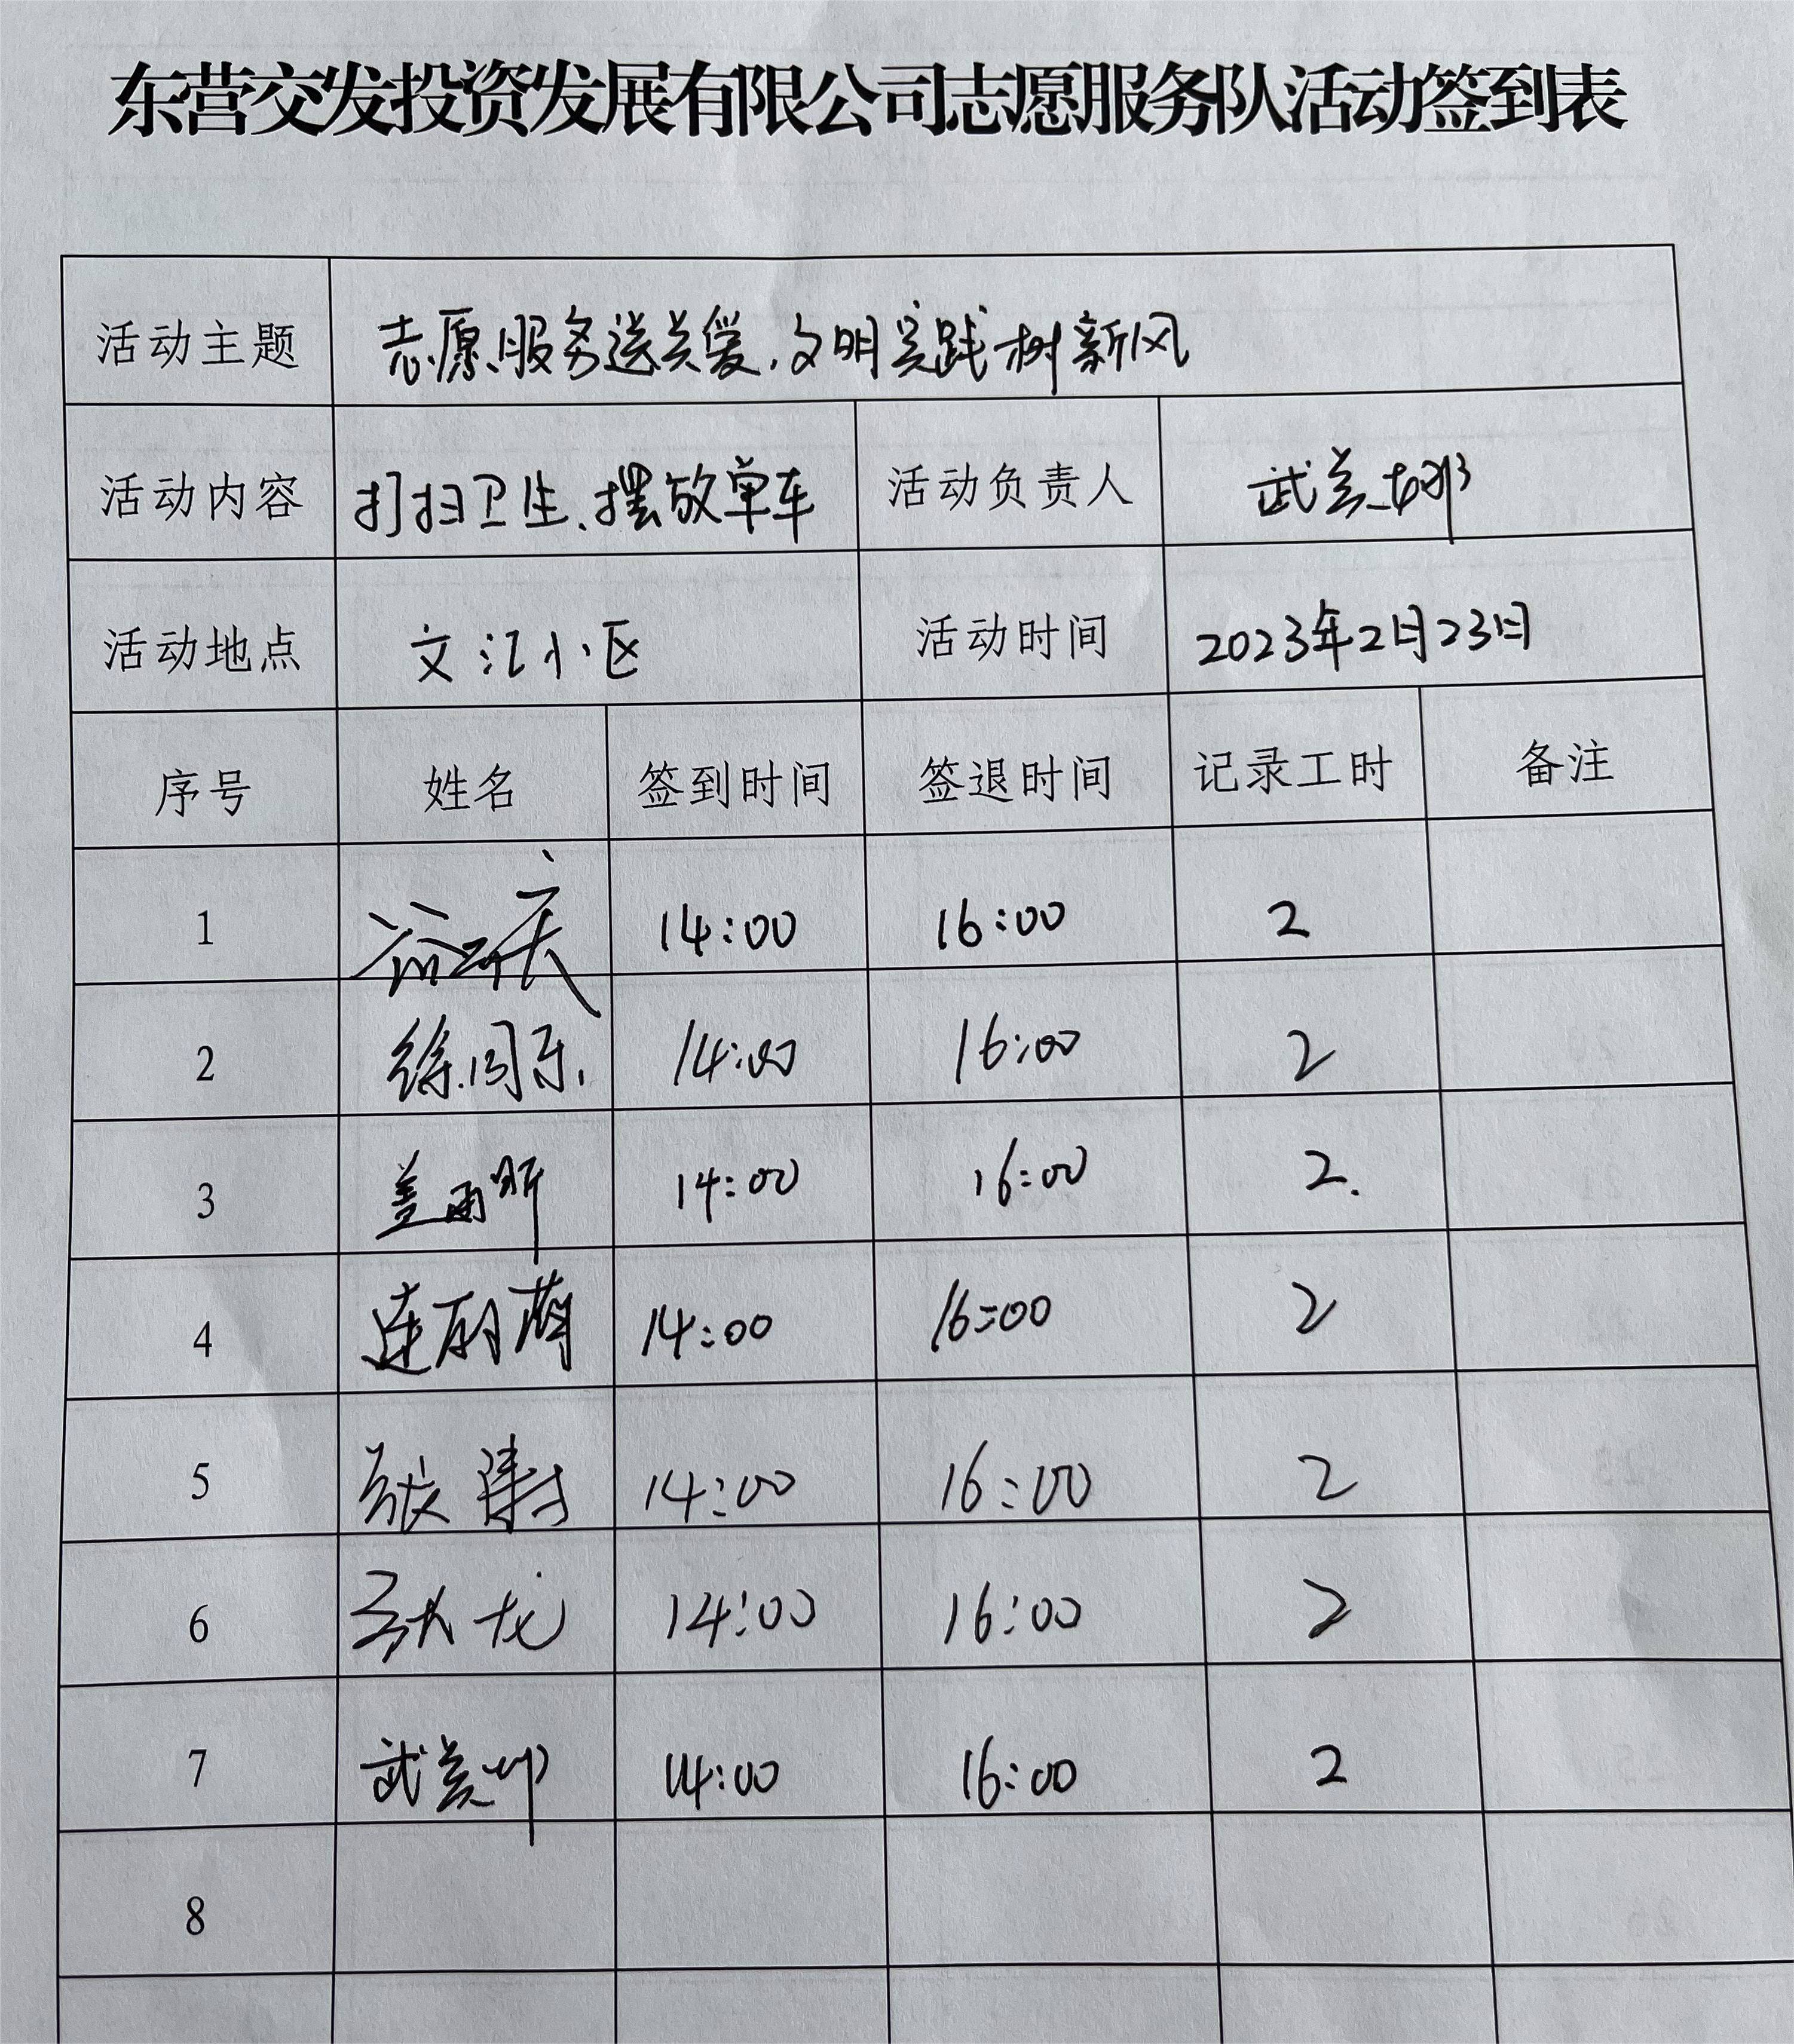 东营交发投资发展有限公司志愿服务队活动签到表
活动主题 志愿服务送关爱,文明实践树新风
活动内容 打扫卫生、摆放单车 活动负责人 武美娜
活动地点 文汇小区 活动时间 2023年2月23日
序号 姓名 签到时间 签退时间 记录工时 备注
1 14:00 16:00 2
2 徐同乐 14:00 16:00 2
3 盖雨昕 14:00 16:00 2.
4 连丽萌 14:00 16:00 2
5 张涛 14:00 16:00 2
6 龙 14:00 16:00 2
7 武美娜 14:00 16:00 2
8